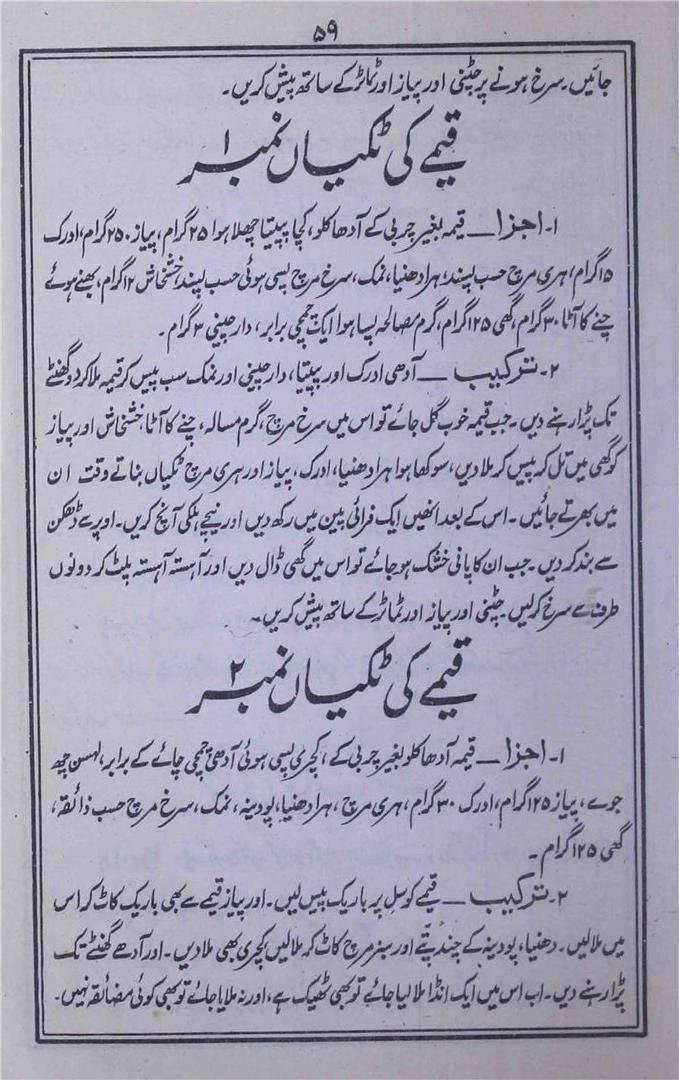 ۵۹
جائیں۔ سرخ ہونے پر چٹنی اور پیاز اور ٹماٹر کے ساتھ پیش کریں۔
قیمے کی ٹکیاں نمبر ۱
۱۔ اجزا — قیمہ بغیر چربی کے آدھا کلو، کچا پپیتا چھلا ہوا ۲۵ گرام، پیاز ۲۵۰ گرام، ادرک
۱۵ گرام، ہری مرچ حسب پسند، ہرا دھنیا، نمک، سرخ مرچ پسی ہوئی حسب پسند، خشخاش ۱۲ گرام، بھنے ہوئے
چنے کا آٹا ۳۰ گرام، گھی ۱۲۵ گرام، گرم مصالحہ پسا ہوا ایک چمچی برابر، دار چینی ۳ گرام۔
۲۔ ترکیب — آدھی ادرک اور پپیتا، دار چینی اور نمک سب پیس کر قیمہ ملا کر دو گھنٹے
تک پڑا رہنے دیں۔ جب قیمہ خوب گل جائے تو اس میں سرخ مرچ، گرم مسالہ، چنے کا آٹا، خشخاش اور پیاز
کو گھی میں تل کر پیس کر ملا دیں، سوکھا ہوا ہرا دھنیا، ادرک، پیاز اور ہری مرچ ٹکیاں بناتے وقت ان
میں بھرتے جائیں۔ اس کے بعد انھیں ایک فرائی پین میں رکھ دیں اور نیچے ہلکی آنچ کریں۔ اوپر سے ڈھکن
سے بند کر دیں۔ جب ان کا پانی خشک ہو جائے تو اس میں گھی ڈال دیں اور آہستہ آہستہ پلٹ کر دونوں
طرف سے سرخ کر لیں۔ چٹنی اور پیاز اور ٹماٹر کے ساتھ پیش کریں۔
قیمے کی ٹکیاں نمبر ۲
۱۔ اجزا — قیمہ آدھا کلو بغیر چربی کے، کچری پسی ہوئی آدھی چمچی چائے کے برابر، لہسن چھ
جوے، پیاز ۱۲۵ گرام، ادرک ۳۰ گرام، ہری مرچ، ہرا دھنیا، پودینہ، نمک، سرخ مرچ حسب ذائقہ،
گھی ۱۲۵ گرام۔
۲۔ ترکیب — قیمے کو سل پر باریک پیس لیں۔ اور پیاز قیمے سے بھی باریک کاٹ کر اس
میں ملا لیں۔ دھنیا، پودینہ کے چند پتّے اور سبز مرچ کاٹ کہ ملا لیں کچری بھی ملا دیں۔ اور آدھے گھنٹے تک
پڑا رہنے دیں۔ اب اس میں ایک انڈا ملا لیا جائے تو بھی ٹھیک ہے، اور نہ ملایا جائے تو بھی کوئی مضائقہ نہیں۔